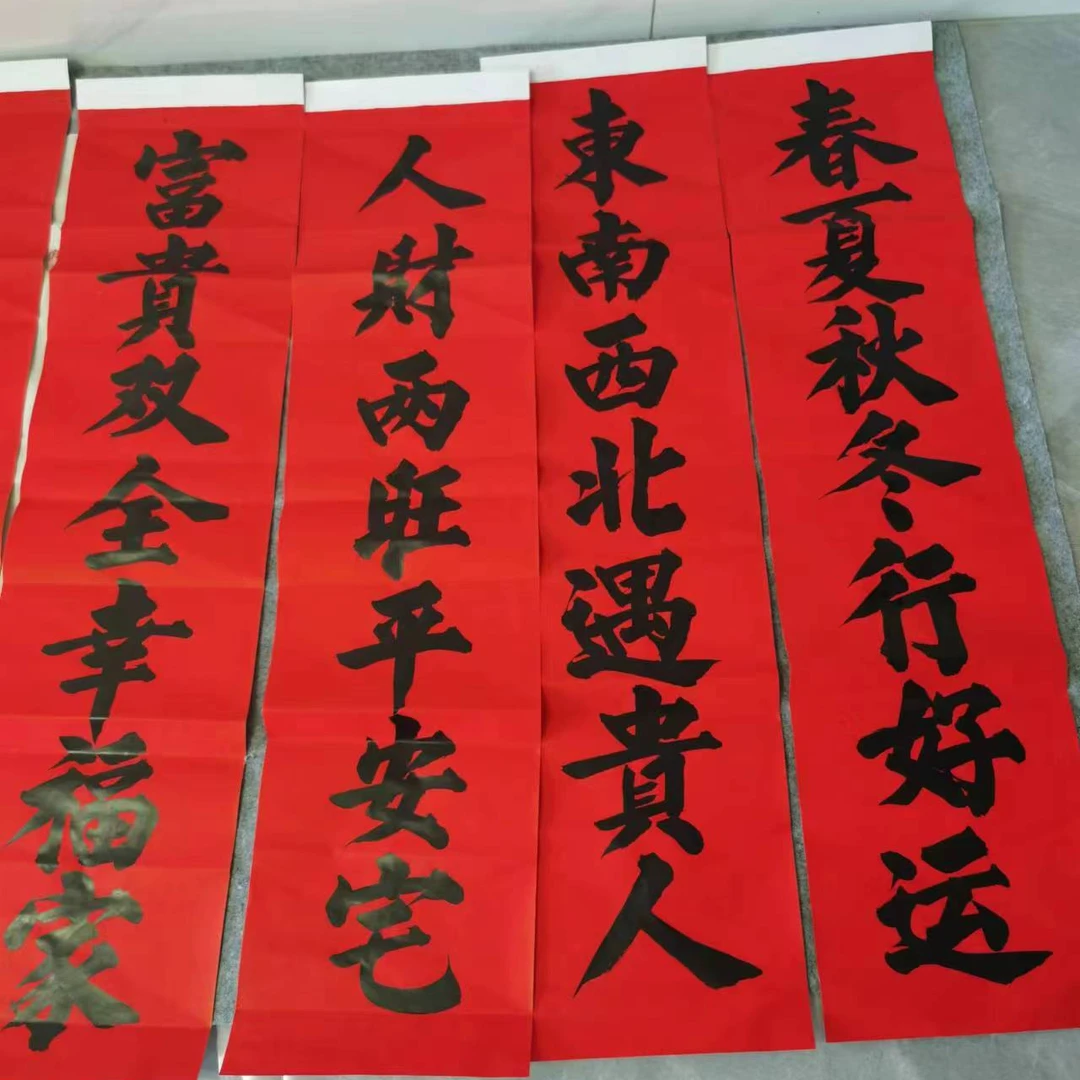 春夏秋冬行好运
東南西北遇貴人
人財两旺平安宅
富貴双全幸福家